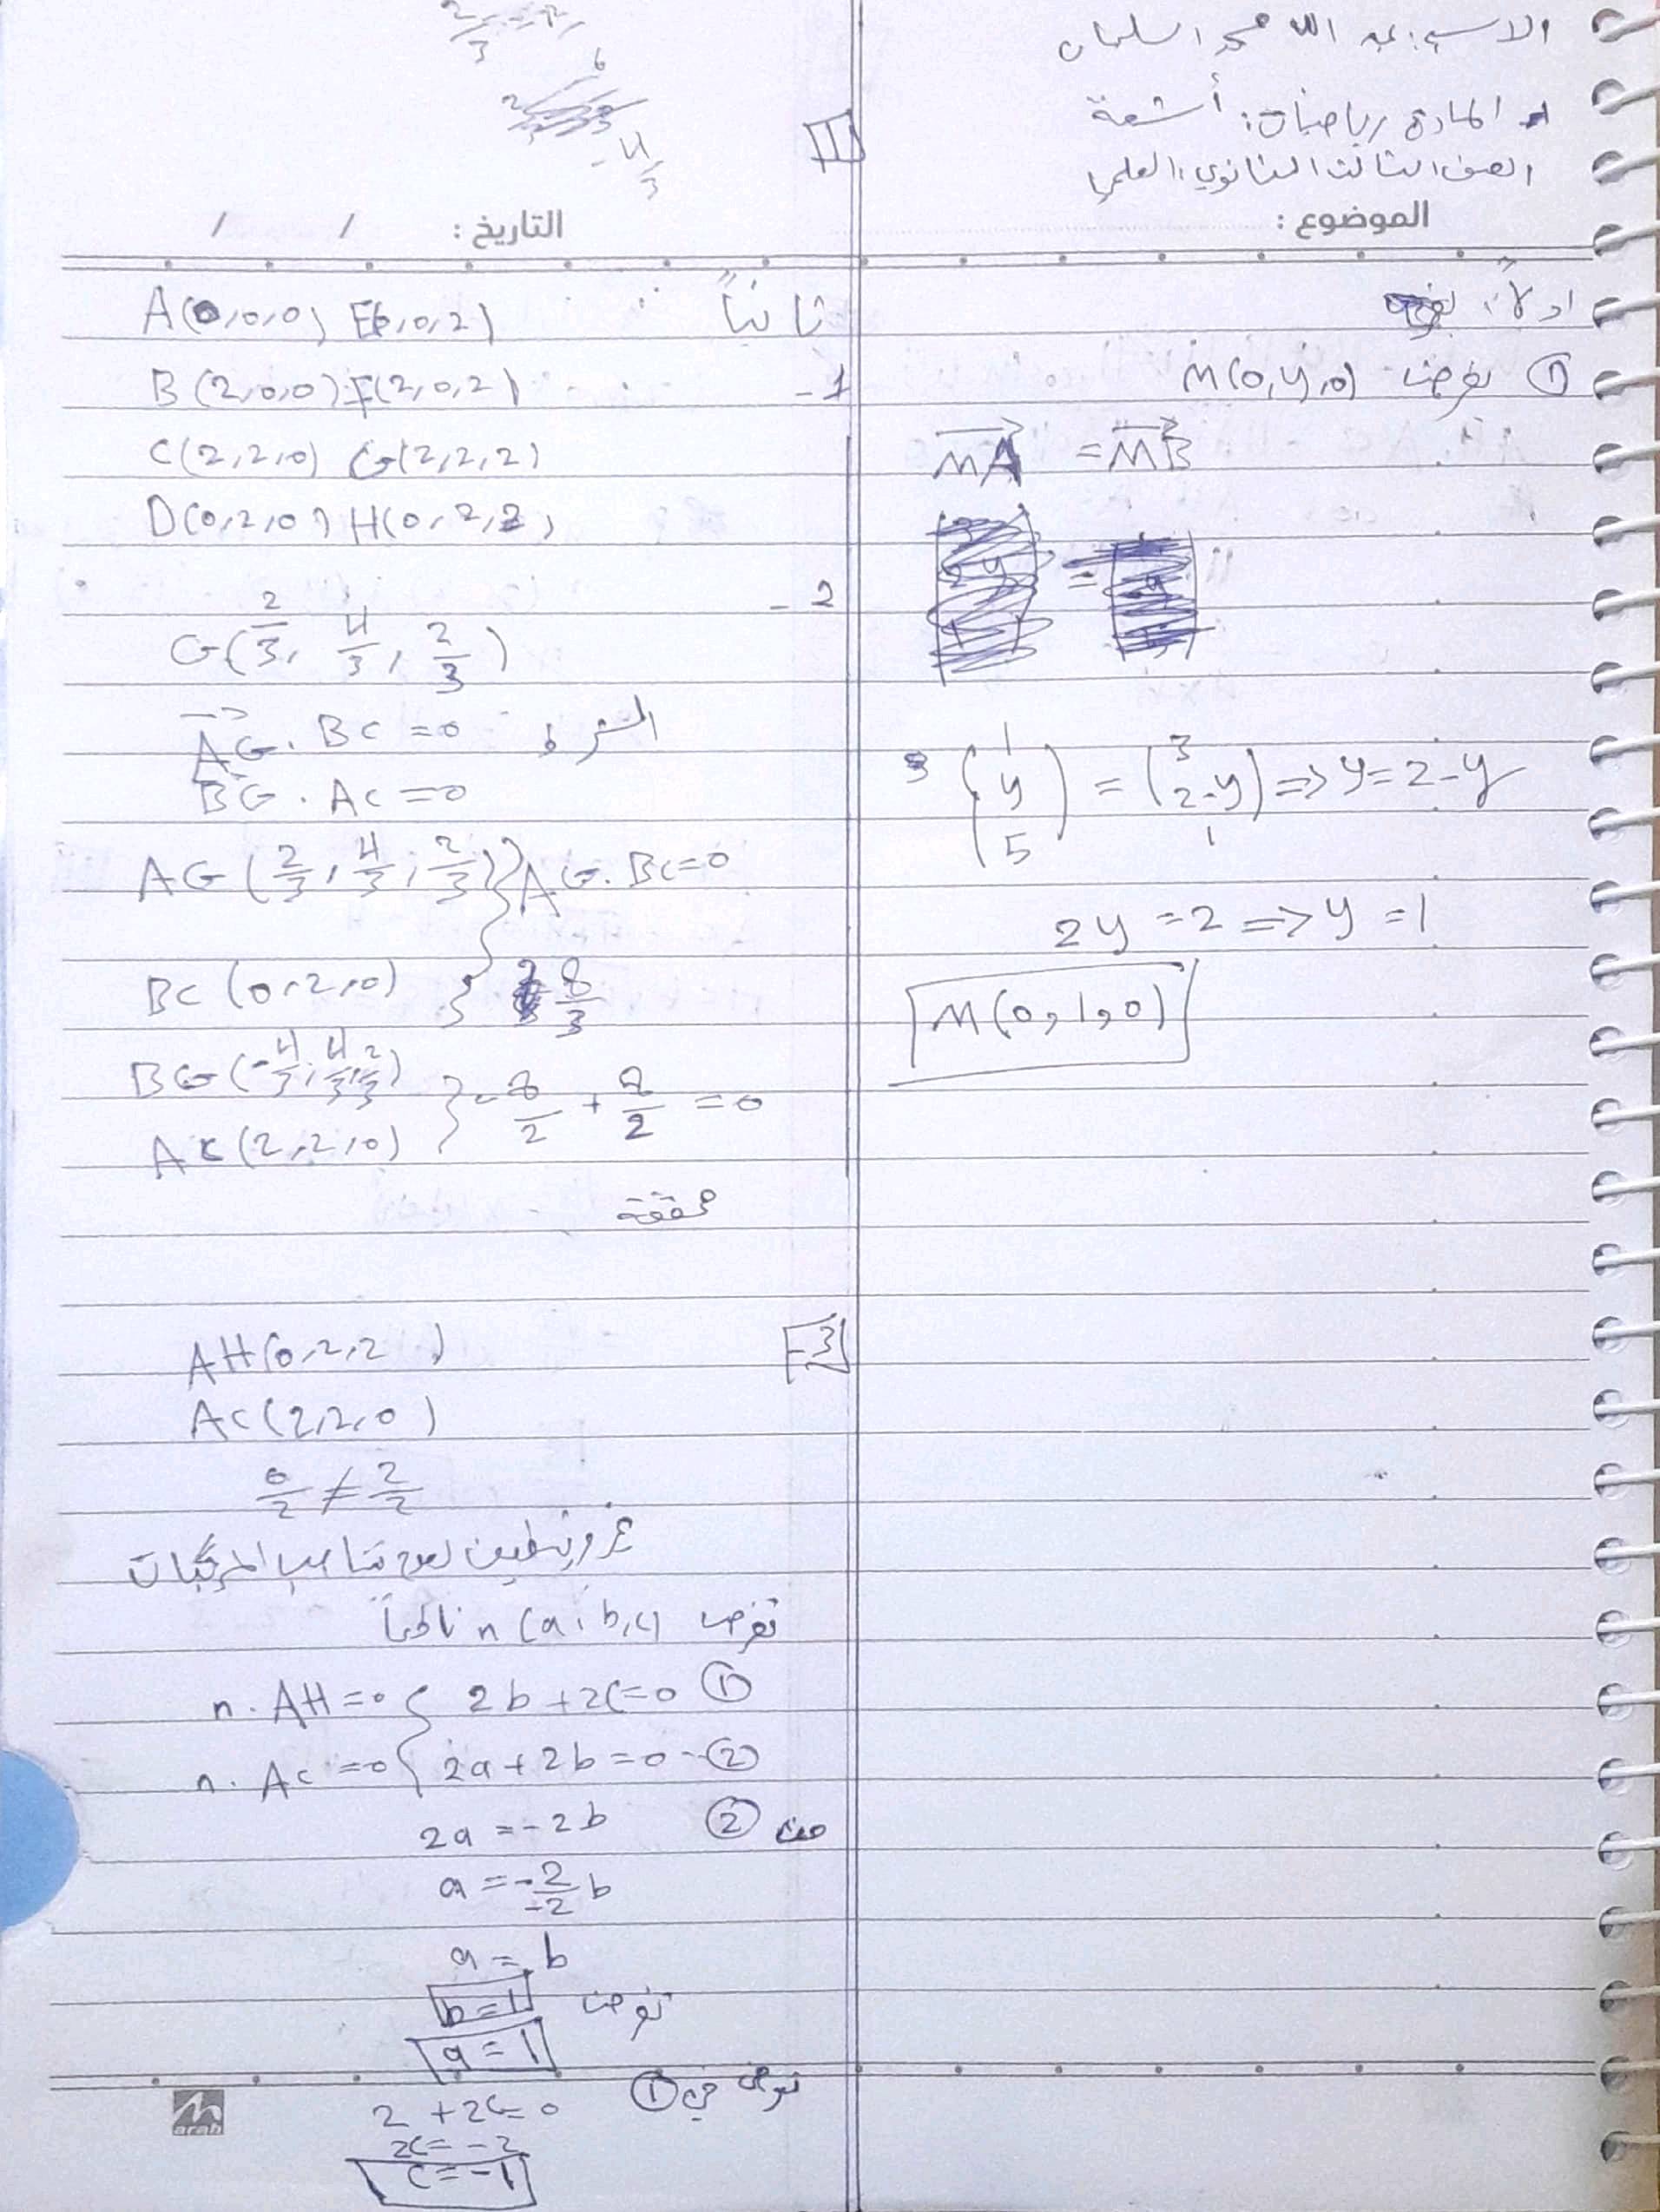 الاسم: عبد الله محمد السلمان
المادة رياضيات: أشعة
الصف الثالث الثانوي العلمي
1
الموضوع :
التاريخ : / /
اولاً:
① نفرض M(0,y,0)
MA = MB
(1 y 5) = (3 2-y 1) => y = 2-y
2y = 2 => y = 1
M(0,1,0)
ثانياً
1-
A(0,0,0) E(0,0,2)
B(2,0,0) F(2,0,2)
C(2,2,0) G(2,2,2)
D(0,2,0) H(0,2,2)
2-
G(2/3, 4/3, 2/3)
الشرط AG . BC = 0
BG . AC = 0
AG(2/3, 4/3, 2/3) } AG . BC = 0
BC(0,2,0) } 8/3
BG(-4/3, 4/3, 2/3)
AC(2,2,0) } -8/2 + 8/2 = 0
محققة
3-
AH(0,2,2)
AC(2,2,0)
0/2 ≠ 2/2
غير مرتبطين لعدم تناسب المركبات
نفرض n(a,b,c) ناظماً
n . AH = 0 { 2b + 2c = 0 ①
n . AC = 0 { 2a + 2b = 0 - ②
من ② 2a = -2b
a = -2/-2 b
a = b
نفرض b = 1
a = 1
نعوض في ①
2 + 2c = 0
2c = -2
c = -1
arab